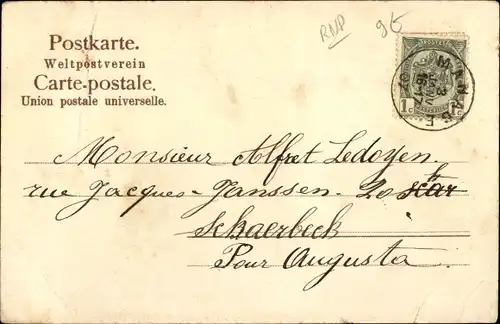 Postkarte.
Weltpostverein
Carte-postale.
Union postale universelle.
RNP
MANAGE
1c
Monsieur Alfret Ledoyen.
rue Jacques-Janssen. 20
Schaerbeck
Pour Augusta